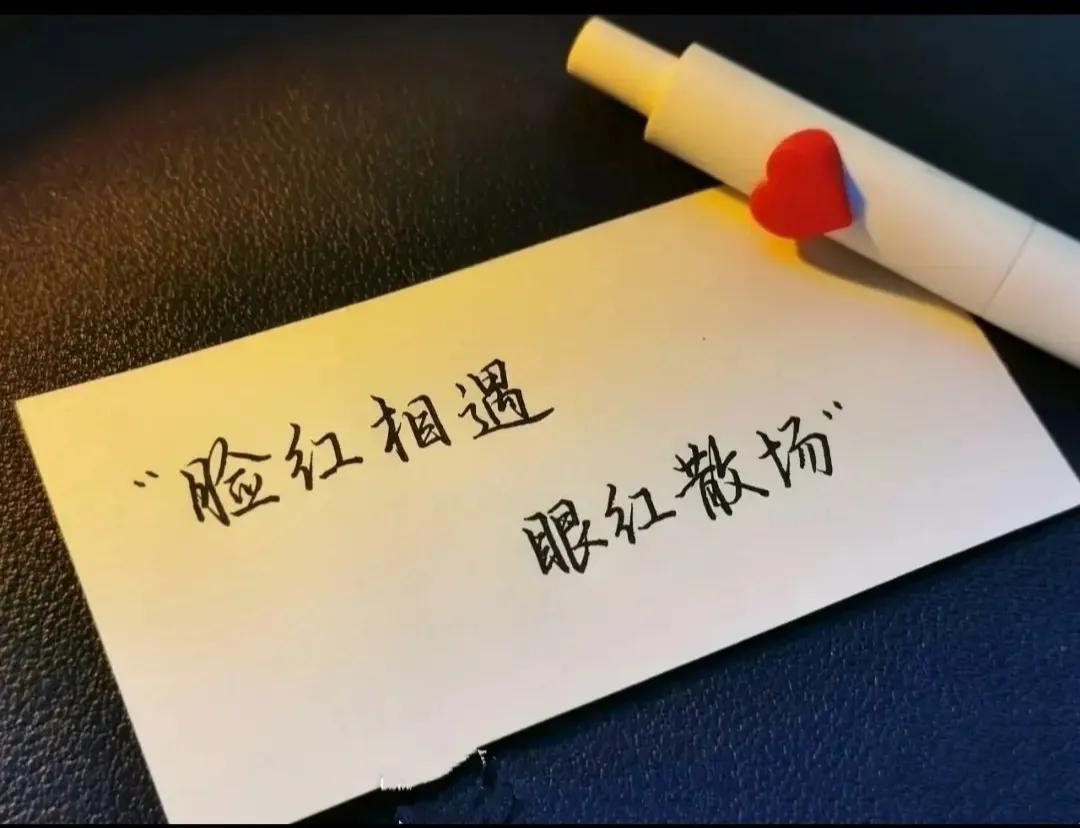 “脸红相遇
眼红散场”